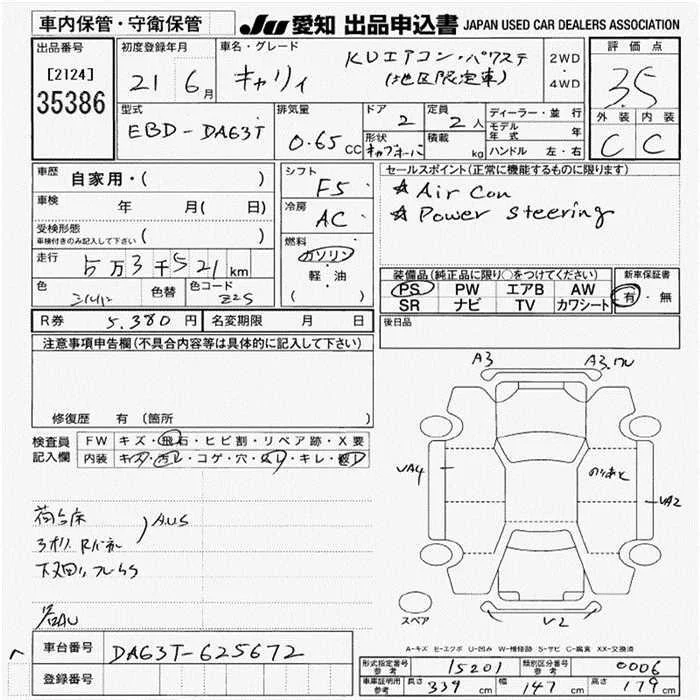 車内保管・守衛保管
JU 愛知 出品申込書 JAPAN USED CAR DEALERS ASSOCIATION
出品番号
[2124]
35386
初度登録年月
21 6月
車名・グレード
キャリイ
KUエアコン・パワステ
(地区限定車)
2WD
・
4WD
評価点
3.5
外装 内装
C C
型式
EBD-DA63T
排気量
0.65 CC
ドア
2
定員
2人
形状
キャブオーバ
積載
kg
ディーラー・並行
モデル年式 年
ハンドル 左・右
車歴 自家用・( )
車検 年 月( 日)
受検形態
車検付きのみ記入して下さい ( )
走行 5万3千521km
色 シルバー 色替 色コード Z2S
シフト
F5
冷房
AC
燃料
ガソリン
・
軽・油
( )
セールスポイント(正常に機能するものに限ります)
☆ Air Con
☆ Power steering
装備品(純正品に限り○をつけてください)
PS PW エアB AW
SR ナビ TV カワシート
新車保証書
有・無
R券 5,380円 名変期限 月 日
後日品
注意事項申告欄(不具合内容等は具体的に記入して下さい)
修復歴 有 (箇所 )
検査員
記入欄
FW キズ・飛石・ヒビ割・リペア跡・X要
内装 キズ・汚レ・コゲ・穴・スレ・キレ・破レ
荷台床
A.U.S
A3 A3.ワレ
UA4
UA2
U2
スペア
A-キズ E-エクボ U-凹み W-補修跡 S-サビ C-腐食 XX-交換済
車台番号 DA63T-625672
登録番号
形式指定番号
参考
15201
類別区分番号
参考
0006
車庫証明用
参考
長さ 339 cm 幅 147 cm 高さ 179 cm